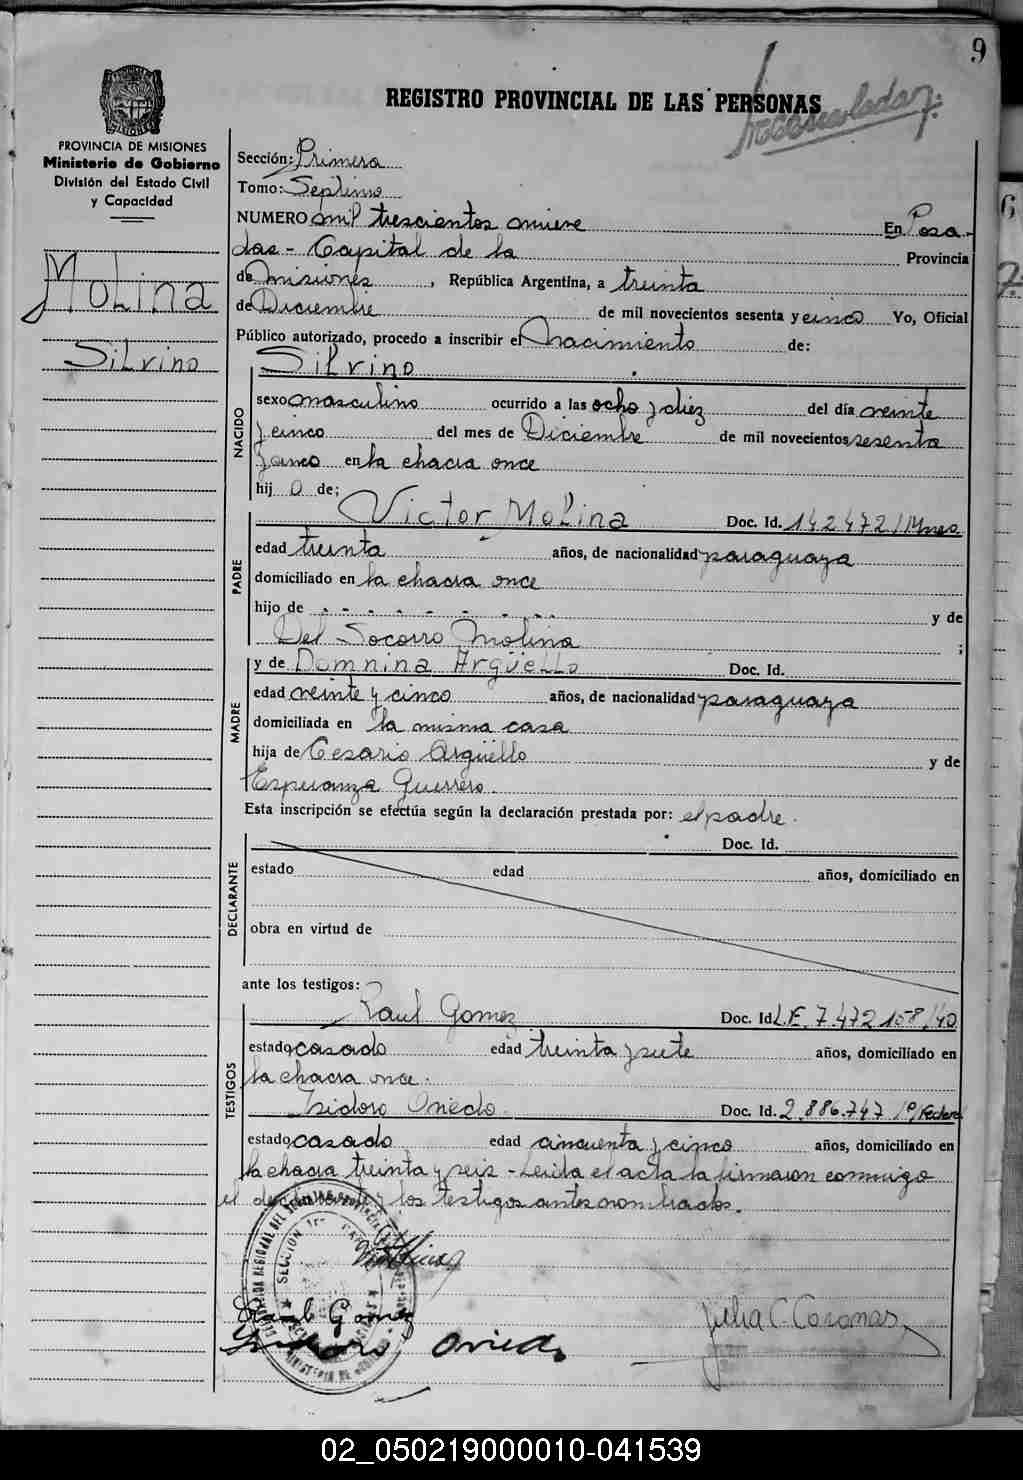 9
REGISTRO PROVINCIAL DE LAS PERSONAS
PROVINCIA DE MISIONES
Ministerio de Gobierno
División del Estado Civil
y Capacidad
Molina
Silvino
Sección: Primera
Tomo: Septimo
NUMERO mil trescientos nueve En Posa-
das - Capital de la Provincia
de Misiones, República Argentina, a treinta
de Diciembre de mil novecientos sesenta y cinco Yo, Oficial
Público autorizado, procedo a inscribir el Nacimiento de:
Silvino
NACIDO
sexo masculino ocurrido a las ocho y diez del día veinte
y cinco del mes de Diciembre de mil novecientos sesenta
y cinco en la chacra once
hij o de;
PADRE
Victor Molina Doc. Id. 142472/Mnes
edad treinta años, de nacionalidad paraguaya
domiciliado en la chacra once
hijo de - - - - - - - - y de
Del Socorro Molina ;
MADRE
y de Domnina Argüello Doc. Id.
edad veinte y cinco años, de nacionalidad paraguaya
domiciliada en la misma casa
hija de Cesario Argüello y de
Esperanza Guerrero.
Esta inscripción se efectúa según la declaración prestada por: el padre.
DECLARANTE
Doc. Id.
estado edad años, domiciliado en
obra en virtud de
ante los testigos:
TESTIGOS
Raul Gomez Doc. Id L.E. 7.472.158/40
estado casado edad treinta y siete años, domiciliado en
la chacra once.
Isidoro Oviedo Doc. Id. 2.886.747 /º/Federal
estado casado edad cincuenta y cinco años, domiciliado en
la chacra treinta y seis - Leida el acta la firmaron conmigo
el declarante y los testigos antes nombrados.
Raul Gomez
Isidoro Oviedo
Julia C. Coronas
02_050219000010-041539